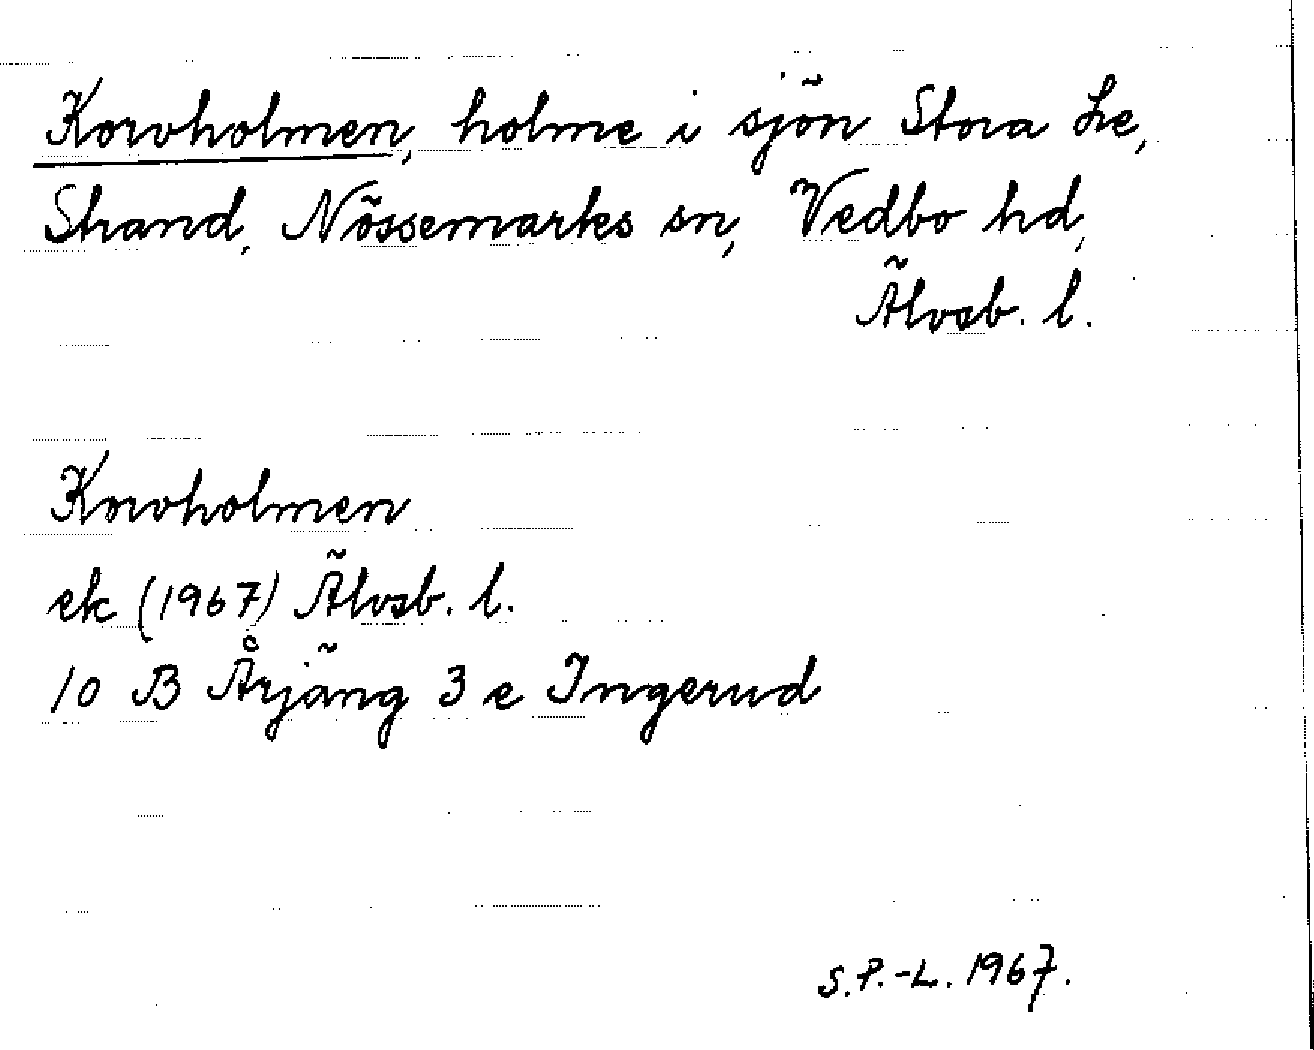 Korvholmen, holme i sjön Stora Le,
Strand, Nössemarks sn, Vedbo hd,
Älvsb. l.
Korvholmen
ek (1967) Älvsb. l.
10 B Årjäng 3 e Ingerud
S.P.-L. 1967.